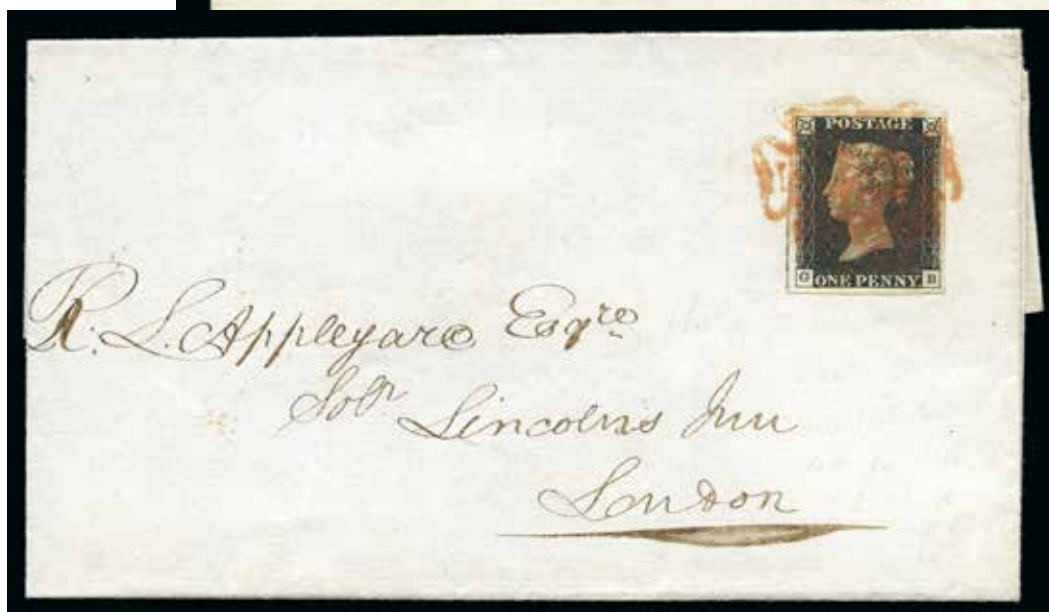 POSTAGE
G ONE PENNY B
R. L. Appleyard Esqre
Solr Lincolns Inn
London